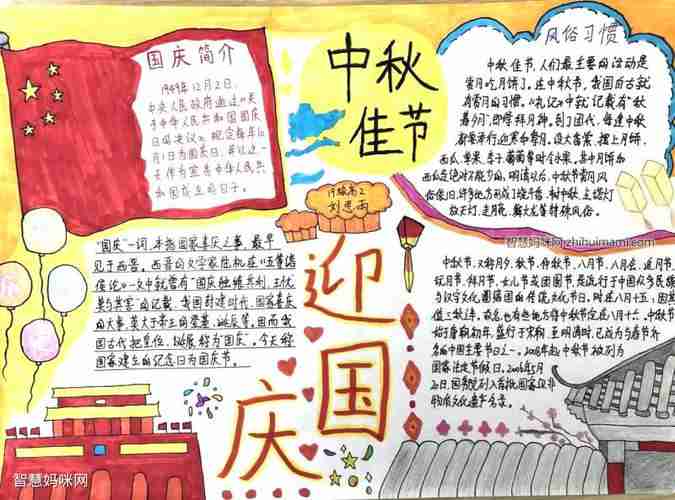 国庆简介
1949年12月2日,
中央人民政府通过《关
于中华人民共和国国庆
日的决议》,规定每年10
月1日为国庆日,并以这一
天作为宣告中华人民共
和国成立的日子。
中秋
佳节
风俗习惯
中秋佳节,人们最主要的活动是
赏月吃月饼了。在中秋节,我国自古就
有赏月的习惯。《礼记》中就记载有“秋
暮夕月”,即祭拜月神。到了周代,每逢中秋
都要举行迎寒和祭月。设大香案,摆上月饼、
西瓜、苹果、李子、葡萄等时令水果,其中月饼和
西瓜是绝对不能少的。明清以后,中秋节赏月风
俗依旧,许多地方形成了烧斗香、树中秋、点塔灯
放天灯、走月亮、舞火龙等特殊风俗。
刘思雨
智慧妈咪网zhihuimami.com
“国庆”一词,本指国家喜庆之事,最早
见于西晋。西晋的文学家陆机在《五等诸
侯论》一文中就曾有“国庆独飨其利,主忧
莫与其害”的记载,我国封建时代,国家喜庆
的大事,莫大过于帝王的登基、诞辰等。因而我
国古代把皇位、诞辰称为“国庆”。今天称
国家建立的纪念日为国庆节。
迎
国
庆
中秋节,又称月夕、秋节、仲秋节、八月节、八月会、追月节、
玩月节、拜月节、女儿节或团圆节,是流行于中国众多民族
与汉字文化圈诸国的传统文化节日,时在八月十五;因其恰
值三秋之半,故名,也有些地方将中秋节定在八月十六。中秋节
始于唐朝初年,盛行于宋朝,至明清时,已成为与春节齐
名的中国主要节日之一。2008年起中秋节被列为
国家法定节假日。2006年5月
20日,国务院列入首批国家级非
物质文化遗产名录。
智慧妈咪网